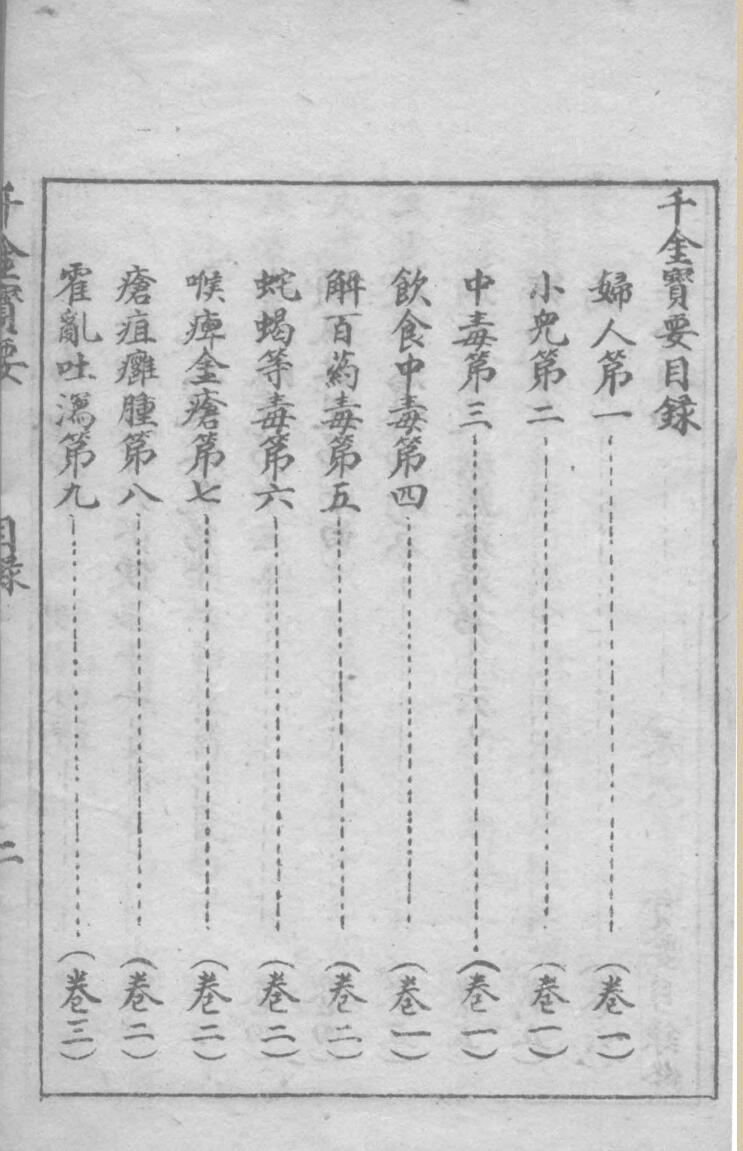 千金寳要目録
婦人第一……（卷一）
小兒第二……（卷一）
中毒第三……（卷一）
飲食中毒第四……（卷一）
解百药毒第五……（卷二）
蛇蝎等毒第六……（卷二）
喉痺金瘡第七……（卷二）
瘡疽癰腫第八……（卷二）
霍亂吐瀉第九……（卷三）
千金寳要 目録 二